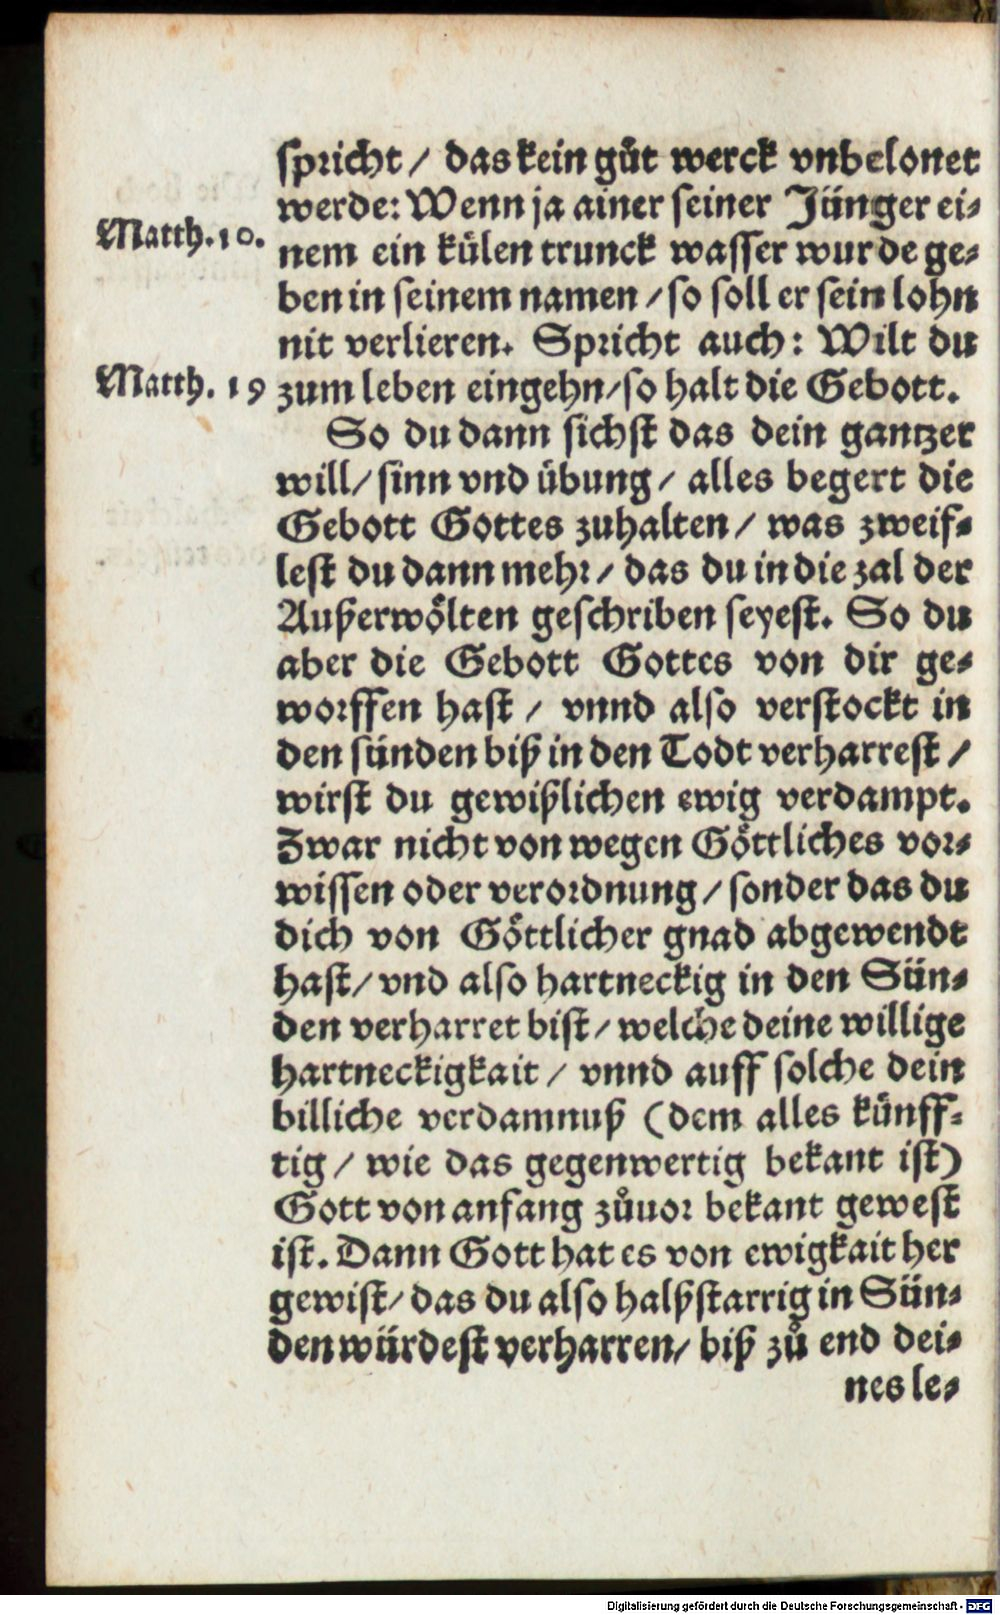 spricht / das kein gůt werck vnbelonet
werde: Wenn ja ainer seiner Jünger ei-
Matth. 10.
nem ein külen trunck wasser wurde ge-
ben in seinem namen / so soll er sein lohn
nit verlieren. Spricht auch: Wilt du
Matth. 19
zum leben eingehn / so halt die Gebott.
So du dann sichst das dein gantzer
will / sinn vnd übung / alles begert die
Gebott Gottes zuhalten / was zweif-
lest du dann mehr / das du in die zal der
Außerwölten geschriben seyest. So du
aber die Gebott Gottes von dir ge-
worffen hast / vnnd also verstockt in
den sünden biß in den Todt verharrest /
wirst du gewißlichen ewig verdampt.
Zwar nicht von wegen Göttliches vor-
wissen oder verordnung / sonder das du
dich von Göttlicher gnad abgewendt
hast / vnd also hartneckig in den Sün-
den verharret bist / welche deine willige
hartneckigkait / vnnd auff solche dein
billiche verdamnuß (dem alles künff-
tig / wie das gegenwertig bekant ist)
Gott von anfang zůuor bekant gewest
ist. Dann Gott hat es von ewigkait her
gewist / das du also halßstarrig in Sün-
den würdest verharren / biß zů end dei-
nes le-
Digitalisierung gefördert durch die Deutsche Forschungsgemeinschaft - DFG